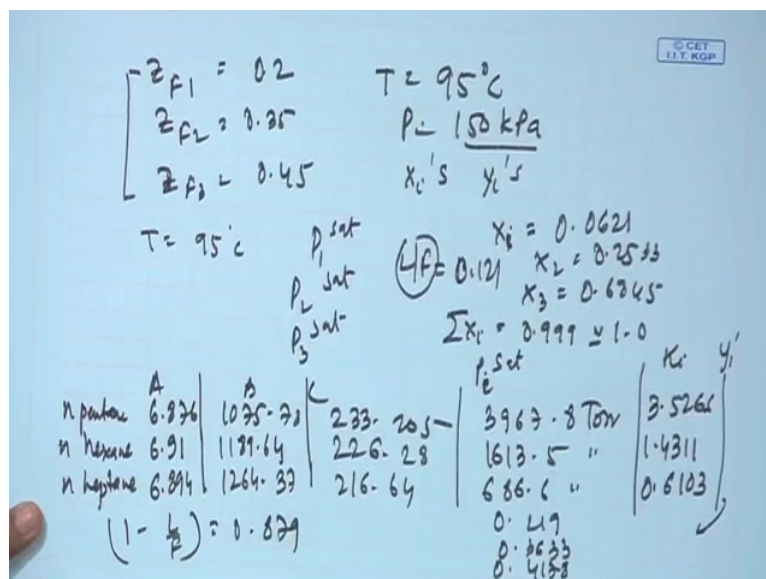 © CET
I.I.T. KGP
Z F1 = 02
T = 95°C
Z F2 = 0.35
P = 150 kPa
Z F3 = 0.45
xi's yi's
T = 95°C
P1 sat
P2 sat
P3 sat
L/F = 0.121
xi = 0.0621
x2 = 0.2533
x3 = 0.6845
Σxi = 0.999 ≃ 1.0
A B C Pi sat Ki yi
n pentane 6.876 1075-78 233.205 3967.8 Torr 3.5265
n hexane 6.91 1189.64 226.28 1613.5 " 1.4311
n heptane 6.894 1264.37 216.64 686.6 " 0.6103
(1 - L/F) = 0.879
0.219
0.3633
0.4178